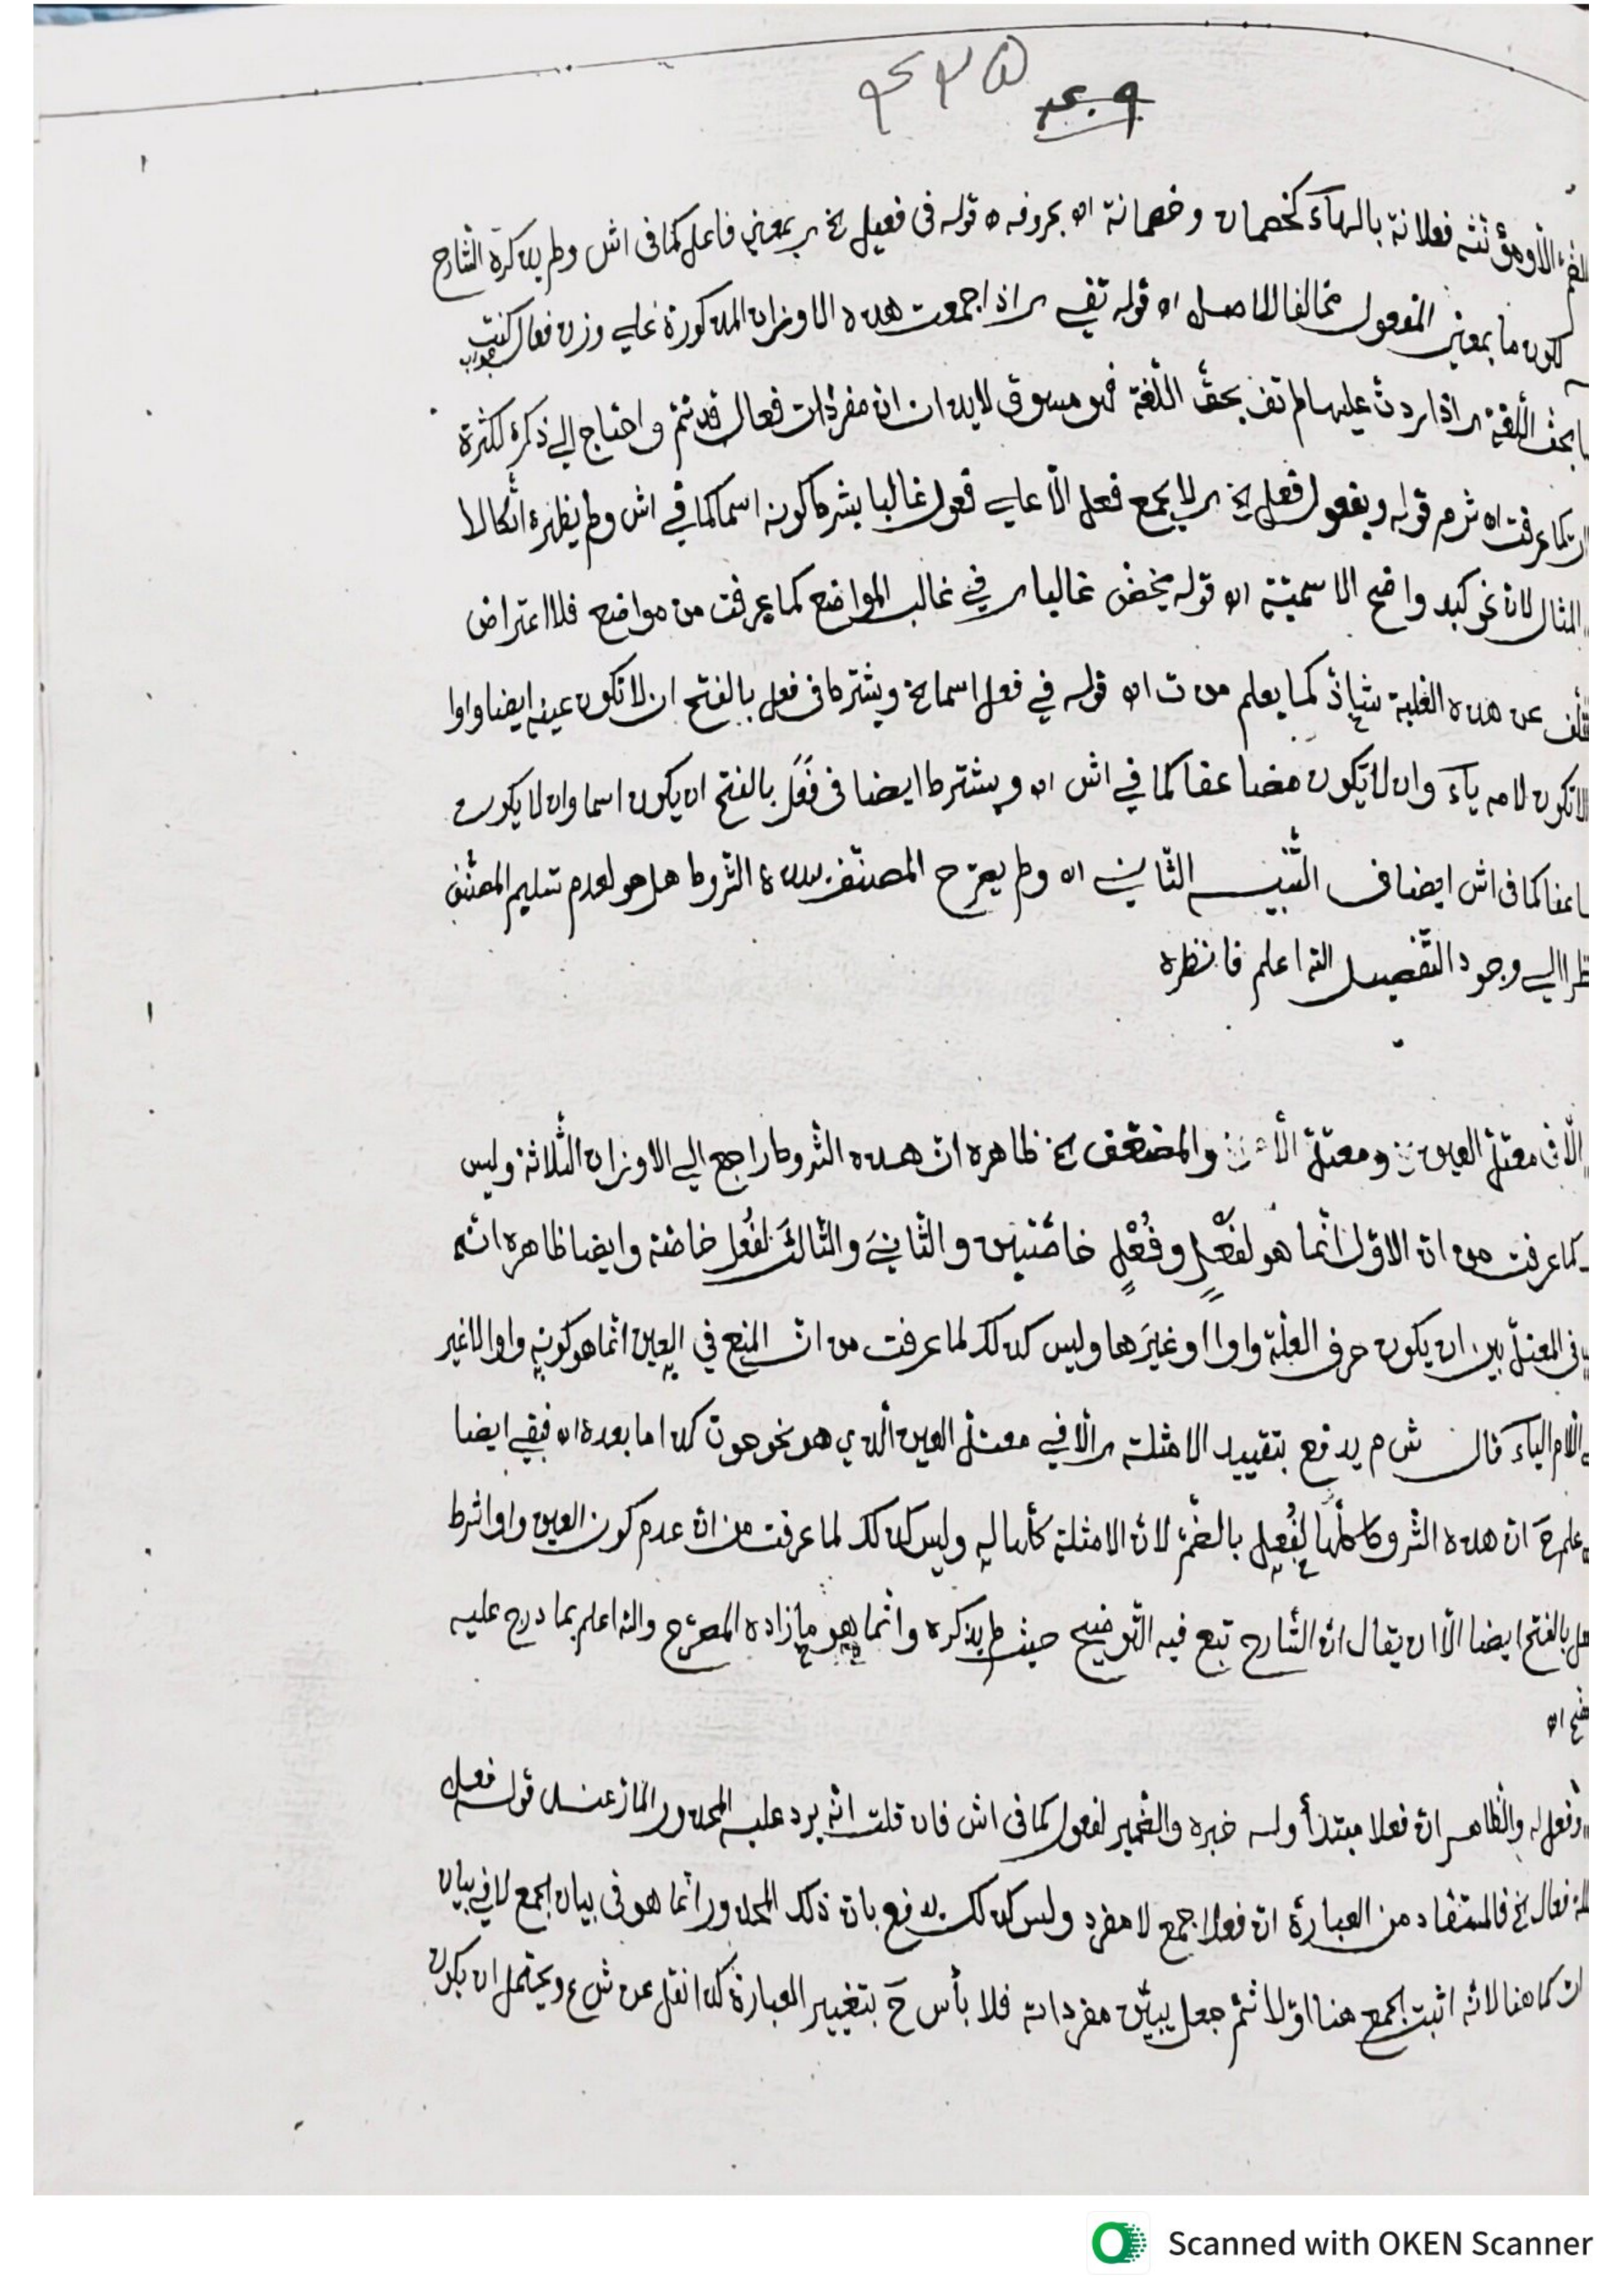 بالضم الأومؤنثه فعلانة بالهآء كخمصان وخمصانة اه بحروفه ه قوله فى فعيل الخ بمعنى فاعل كما فى اش ولم يذكره الشارح
لكون ما بمعنى المفعول مخالفا للاصل اه قوله تفى اذا جمعت هذه الاوزان المذكورة على وزن فعال كنت
بحق اللغة اذا اردت عليها لم تف بحق اللغة فهو مسوق لايذان ان مفردات فعال قد تتم واحتاج الى ذكره لكثرة
كما عرفت اه ش م قوله وبفعول فعل الخ لا يجمع فعل الّا على فعول غالبا بشرط كونه اسما كما في اش ولم يظهره اتكالا
المثال لان نحو كبد واضح الاسميّة اه قوله يخص غالبا في غالب المواضع كما يعرفت من مواضع فلا اعتراض
عن هذه الغلبة شاذّ كما يعلم من ت اه قوله في فعل اسما الخ ويشترط فى فعل بالفتح ان لا تكون عينه ايضا واوا
لا تكون لامه يآء وان لا يكون مضاعفا كما في اش اه ويشترط ايضا فى فَعَل بالفتح ان يكون اسما وان لا يكون
كما فى اش ايضا فى التنبيـه الثاني اه ولم يصرّح المصنّف بهذه الشروط هل هو لعدم تسليم المصنّف
نظرا الى وجود التّفصيل الله اعلم فانظره
الّا فى معتلّ العين ومعتلّ والمضعّف الخ ظاهره ان هذه الشروط راجع الى الاوزان الثلاثة وليس
كما عرفت من ان الاوّل انّما هو لفَعْلٍ وفُعْلٍ خاصّتين والثّانيَ والثّالثَ لفُعْل خاصّة وايضا ظاهره انّه
فى المعتلّ بين ان يكون حرف العلّة واوا او غيرَها وليس كذلك لما عرفت من ان المنع في العين انّما هو كونه واوا لا غير
اللّام الياء قال ش م يدفع بتقييد الامثلة الّا في معتلّ العين الّذي هو نحو حوت كذا ما بعده اه فبقي ايضا
علم حَ انّ هذه الشروط كلّها لفُعِل بالضّمّ لانّ الامثلة كلّها له وليس كذلك لما عرفت من انّ عدم كون العين واوا شرط
بالفتح ايضا الّا ان يقال انّ الشّارح تبع فيه التّوضيح حيث لم يذكره وانّما هو ما زاده المصرّح والله اعلم بما درج عليه
اه
وفعل له والظاهـر انّ فعلا مبتدأ ولـه خبره والضّمير لفعول كما فى اش فان قلت انّه يرد عليه المحذور المارّ عند قوله فعل
فعال الخ فالمستفاد من العبارة انّ فعلا جمع لا مفرد وليس كذلك يدفع بانّ ذلك المحذور انّما هو فى بيان الجمع لا في بيان
كما هنا لانّه اثبت الجمع هنا اوّلا ثمّ جعل يبيّن مفرداته فلا بأس حَ بتغيير العبارة كذا نقل عن ش ع ويحتمل ان يكون
Scanned with OKEN Scanner